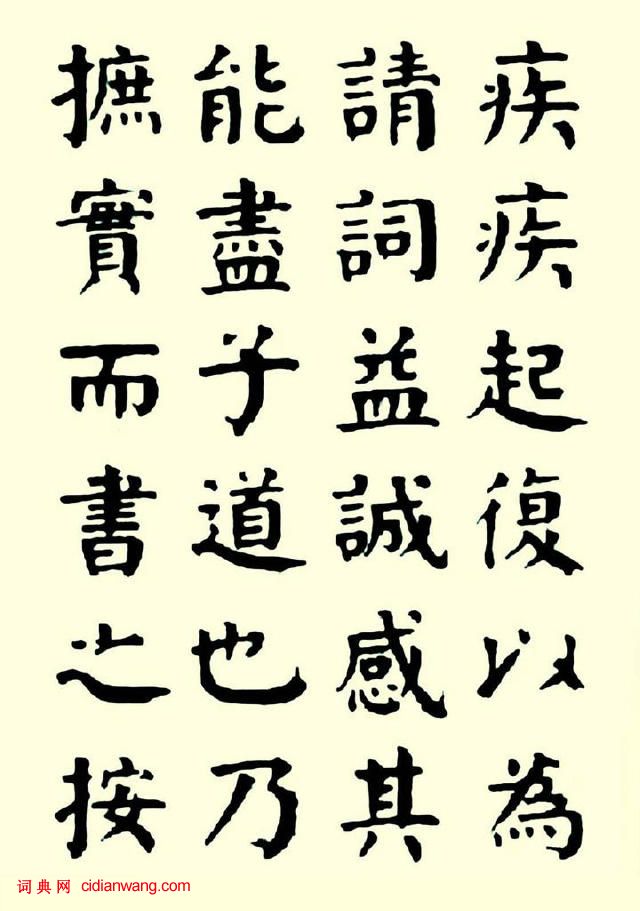 疾疾起復以為
請詞益誠感其
能盡子道也乃
摭實而書之按
词典网 cidianwang.com